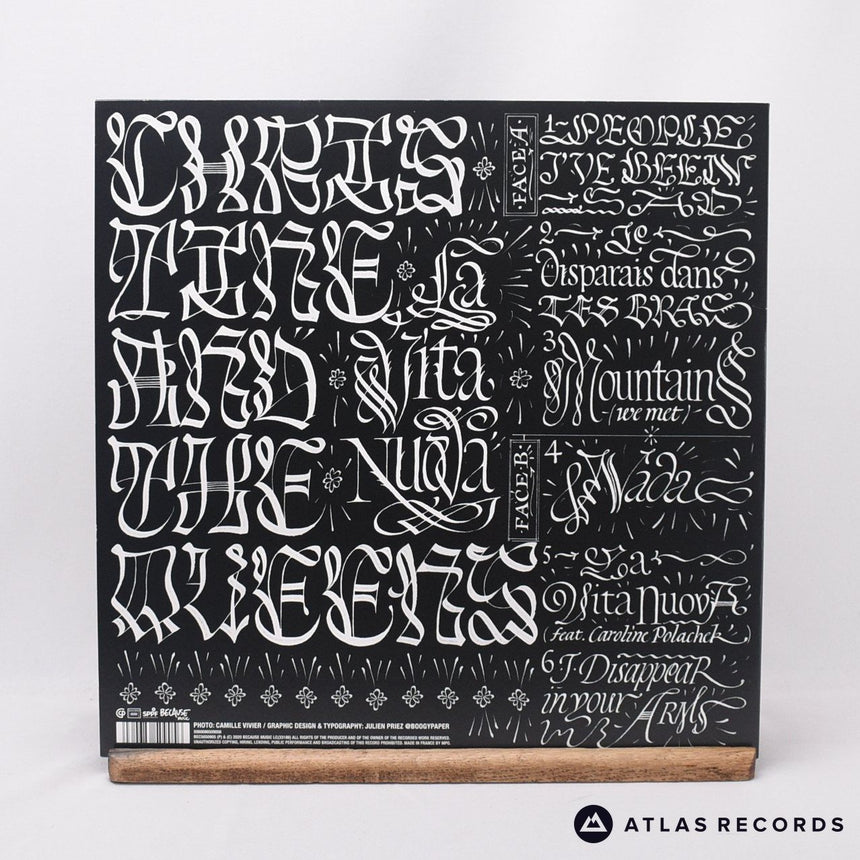 CHRIS
TINE
AND
THE
QUEENS
La
Vita
Nuova
·FACE·A·
1- PEOPLE
I'VE BEEN
SAD
2 Je
Disparais dans
TES BRAS
3 Mountains
-(we met)-
·FACE·B·
4 Nada
5- La
Vita Nuova
(feat. Caroline Polachek)
6 I Disappear
in your ARMS
SPPF BECAUSE
PHOTO: CAMILLE VIVIER / GRAPHIC DESIGN & TYPOGRAPHY: JULIEN PRIEZ @BOOGYPAPER
(P) & (C) 2020 BECAUSE MUSIC ALL RIGHTS OF THE PRODUCER AND OF THE OWNER OF THE RECORDED WORK RESERVED.
UNAUTHORIZED COPYING, HIRING, LENDING, PUBLIC PERFORMANCE AND BROADCASTING OF THIS RECORD PROHIBITED. MADE IN FRANCE BY MPO.
ATLAS RECORDS